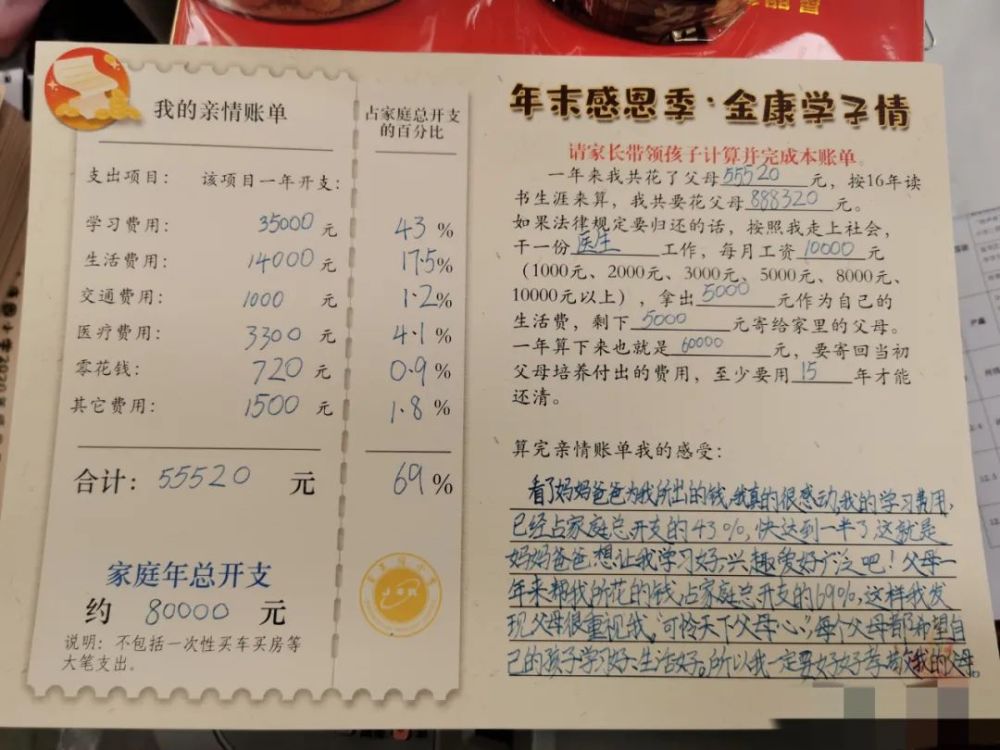 我的亲情账单
占家庭总开支
的百分比
支出项目： 该项目一年开支：
学习费用： 35000 元 43 %
生活费用： 14000 元 17.5%
交通费用： 1000 元 1.2%
医疗费用： 3300 元 4.1 %
零花钱： 720 元 0.9 %
其它费用： 1500 元 1.8 %
合计： 55520 元 69 %
家庭年总开支
约 80000 元
说明：不包括一次性买车买房等
大笔支出。
年末感恩季·金康学子情
请家长带领孩子计算并完成本账单。
一年来我共花了父母55520元，按16年读
书生涯来算，我共要花父母888320元。
如果法律规定要归还的话，按照我走上社会，
干一份医生工作，每月工资10000元
（1000元、2000元、3000元、5000元、8000元、
10000元以上），拿出5000元作为自己的
生活费，剩下5000元寄给家里的父母。
一年算下来也就是60000元，要寄回当初
父母培养付出的费用，至少要用15年才能
还清。
算完亲情账单我的感受：
看了妈妈爸爸为我所出的钱，我真的很感动，我的学习费用，
已经占家庭总开支的43%，快达到一半了，这就是
妈妈爸爸，想让我学习好，兴趣爱好广泛吧！父母一
年来帮我所花的钱，占家庭总开支的69%，这样我发
现父母很重视我，"可怜天下父母心"，每个父母都希望自
己的孩子学习好、生活好。所以我一定要好好孝敬我的父母。